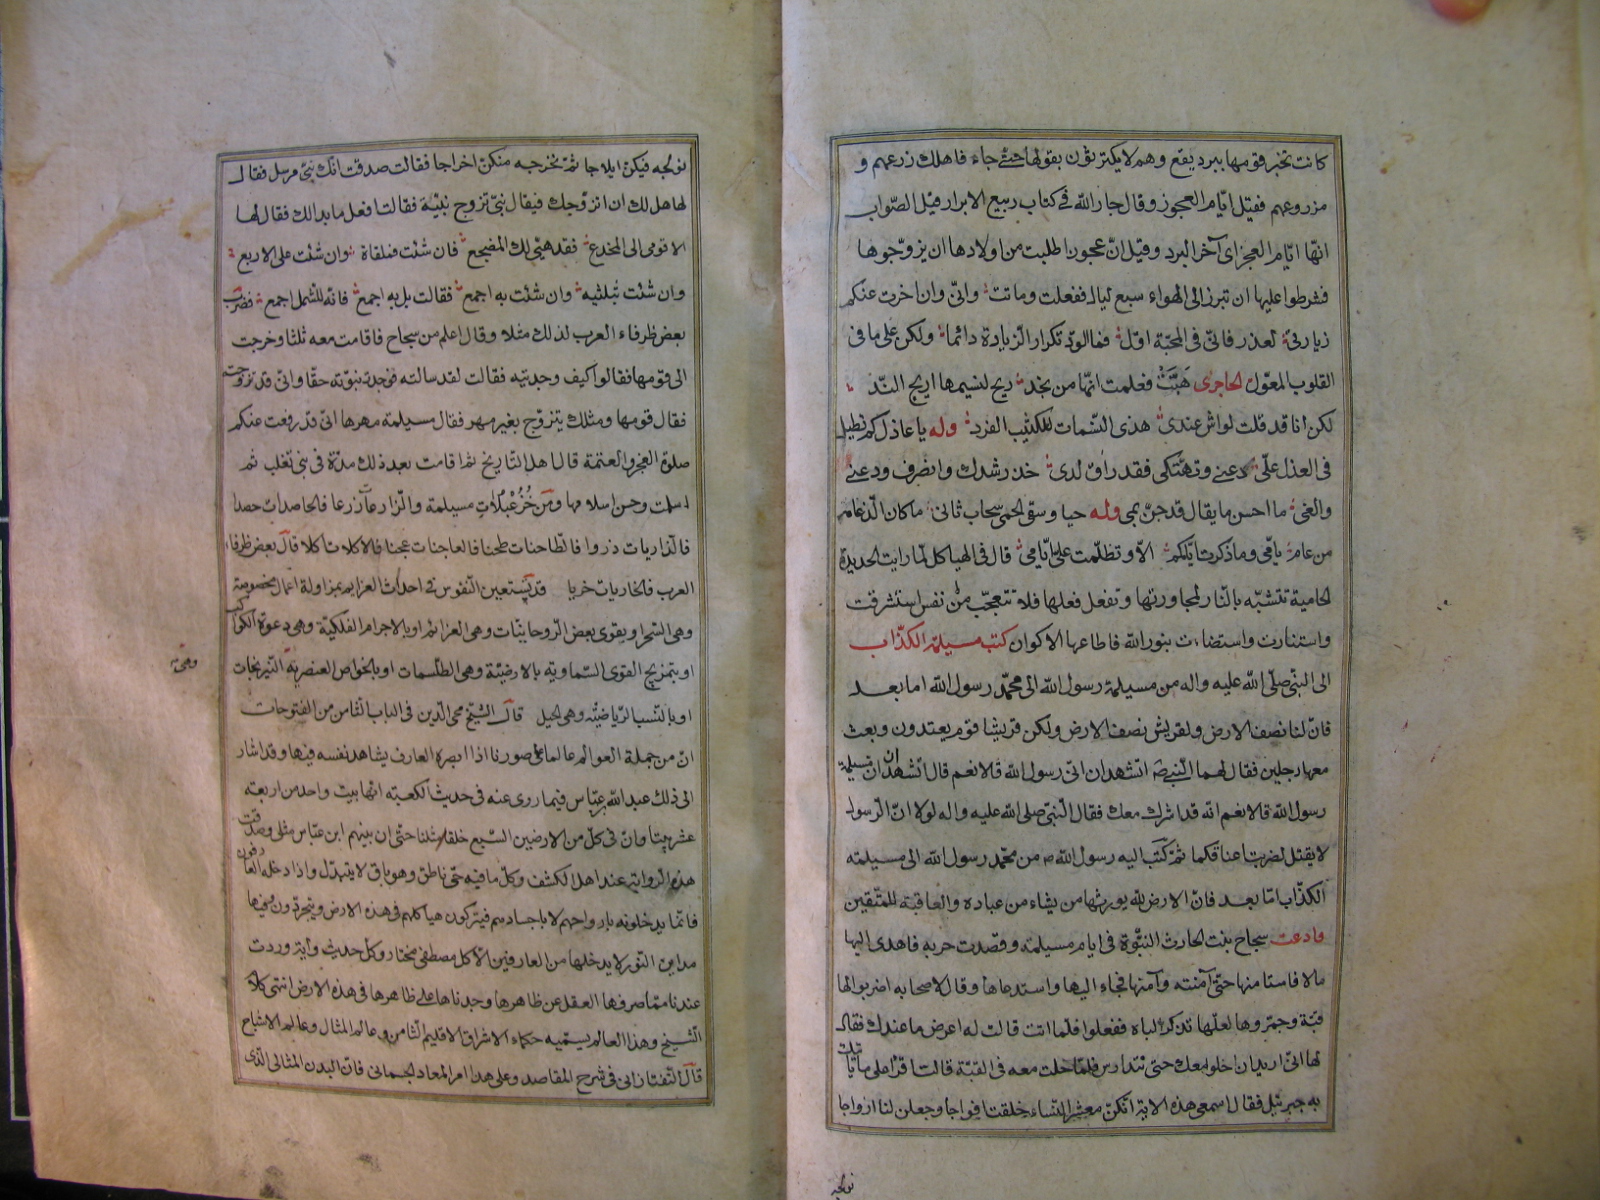 كانت تخبر قومها ببرد يقع وهم لا يكترثون بقولها حتى جاء فاهلك زرعهم و
مزروعهم فقيل ايّام العجوز وقال جار الله فى كتاب ربيع الابرار قيل الصّواب
انّها ايّام العجز اى آخر البرد وقيل انّ عجوزا طلبت من اولادها ان يزوّجوها
فشرطوا عليها ان تبرز الى الهواء سبع ليال ففعلت وماتت وانّى وان اخرت عنكم
زيارتى لعذر فانّى فى المحبّة اوّل فما الودّ تكرار الزيادة دائما ولكن على ما فى
القلوب المعوّل الحاجرى هَبَّتْ فعلمت انّها من نجد ريح لنسيمها اريج النّد
لكن انا قد قلت لواش عندى هذى النسمات للكثيب الفرد وله يا عاذل كم تطيل
فى العذل علىّ دعنى وتهتكى فقد راق لدىّ خذ رشدك وانصرف ودعنى
والغىّ ما احسن ما يقال قد جنّ بمى وله حيا وسقى الحمى سحاب ثانى ما كان الذ عامه
من عام يا مى وما ذكرت ايّامكم الّا وتظلّمت على ايّامى قال فى الهياكل لمّا رايت الحديدة
الحامية تتشبّه بالنّار لمجاورتها وتفعل فعلها فلا تتعجّب من نفس استشرقت
واستنارت واستضاءت بنور الله فاطاعها الاكوان كتب مسيلمة الكذّاب
الى النّبى صلّى الله عليه واله من مسيلمة رسول الله الى محمّد رسول الله اما بعد
فانّ لنا نصف الارض ولقريش نصف الارض ولكن قريشا قوم يعتدون وبعث
معها رجلين فقال لهما النّبى ص اتشهدان انّى رسول الله قالا نعم قال اتشهدان انّ مسيلمة
رسول الله قالا نعم انّه قد اشرك معك فقال النّبى صلى الله عليه واله لولا انّ الرّسول
لا يقتل لضربت اعناقكما ثمّ كتب اليه رسول الله ص من محمّد رسول الله الى مسيلمة
الكذّاب امّا بعد فانّ الارض لله يورثها من يشاء من عباده والعاقبة للمتّقين
وادعت سجاح بنت الحارث النبّوة فى ايام مسيلمة وقصدت حربه فاهدى اليها
مالا فاستامنها حتّى آمنته وآمنها فجاء اليها واستدعاها وقال لاصحابه اضربوا لها
قبّة وجمّروها لعلّها تذكر الباه ففعلوا فلمّا اتت قالت له اعرض ما عندك فقال
لها انّى اريد ان اخلو معك حتى نتدارس فلمّا خلت معه فى القبّة قالت اقرأ على ما ياتيك
به جبرئيل فقال اسمعى هذه الاية انّكنّ معشر النّساء خلقتنّ افواجا وجعلن لنا ازواجا
نولجه
نولجه فيكنّ ايلاجا ثمّ نخرجه منكنّ اخراجا فقالت صدقت انّك نبىّ مرسل فقال
لها هل لك ان اتزوّجك فيقال نبىّ تزوج نبيّة فقالت افعل ما بدا لك فقال لها
الا قومى الى المخدع فقد هيّئ لك المضجع فان شئت فملقاة وان شئت على الاربع
وان شئت بثلثيه وان شئت به اجمع فقالت بل به اجمع فانّه للشّمل اجمع فضرب
بعض ظرفاء العرب لذلك مثلا وقال اغلم من سجاح فاقامت معه ثلثا وخرجت
الى قومها فقالوا كيف وجدتيه فقالت لقد سالته فوجدت نبوّته حقّا وانّى قد تزوجته
فقال قومها ومثلك يتزوّج بغير مهر فقال مسيلمة مهرها انّى قد رفعت عنكم
صلوة الفجر والعتمة قال اهل التّاريخ ثمّ اقامت بعد ذلك مدّة فى بنى تغلب ثم
اسلمت وحسن اسلامها ومن خُزُعْبَلَاتِ مسيلمة والزّارعات زرعا فالحاصدات حصدا
فالذّاريات ذروا فالطّاحنات طحنا فالعاجنات عجنا فالاكلات اكلا قال بعض ظرفاء
العرب فالخاريات خريا قد يستعين النّفوس فى احداث العزايم بمزاولة اعمال مخصوصة
وهى السّحر او بقوى بعض الرّوحانيّات وهى العزائم او بالاجرام الفلكيّة وهى دعوة الكواكب
او بتمزيج القوى السّماويّة بالارضيّة وهى الطّلسمات او بالخواص العنصريّة النّيرنجات
وهى
او بالنّسب الرّياضيّة وهى الحيل قال الشّيخ محى الدّين فى الباب الثّامن من الفتوحات
انّ من جملة العوالم عالما على صورنا اذا ابصره العارف يشاهد نفسه فيها وقد اشار
الى ذلك عبد الله عبّاس فيما روى عنه فى حديث الكعبة انّها بيت واحد من اربعة
عشر بيتا وانّ فى كلّ من الارضين السّبع خلقا مثلنا حتّى ان بينهم ابن عبّاس مثلى وصدقت
هذه الرّواية عند اهل الكشف وكلّ ما فيه حىّ ناطق وهو باق لا يتبدّل واذا دخله العارفون
فانّما يدخلونه بارواحهم لا باجسادهم فيتركون هياكلهم فى هذه الارض ويتجرّدون وفيها
مداين النّور لا يدخلها من العارفين الّا كل مصطفى مختار وكل حديث وآية وردت
عندنا ممّا صرفها العقل عن ظاهرها وجدناها على ظاهرها فى هذه الارض انتهى كلام
الشّيخ وهذا العالم يسمّيه حكماء الاشراق الاقليم الثّامن وعالم المثال وعالم الاشباح
قال التّفتازانى فى شرح المقاصد وعلى هذا امر المعاد الجسمانى فانّ البدن المثالى الّذى